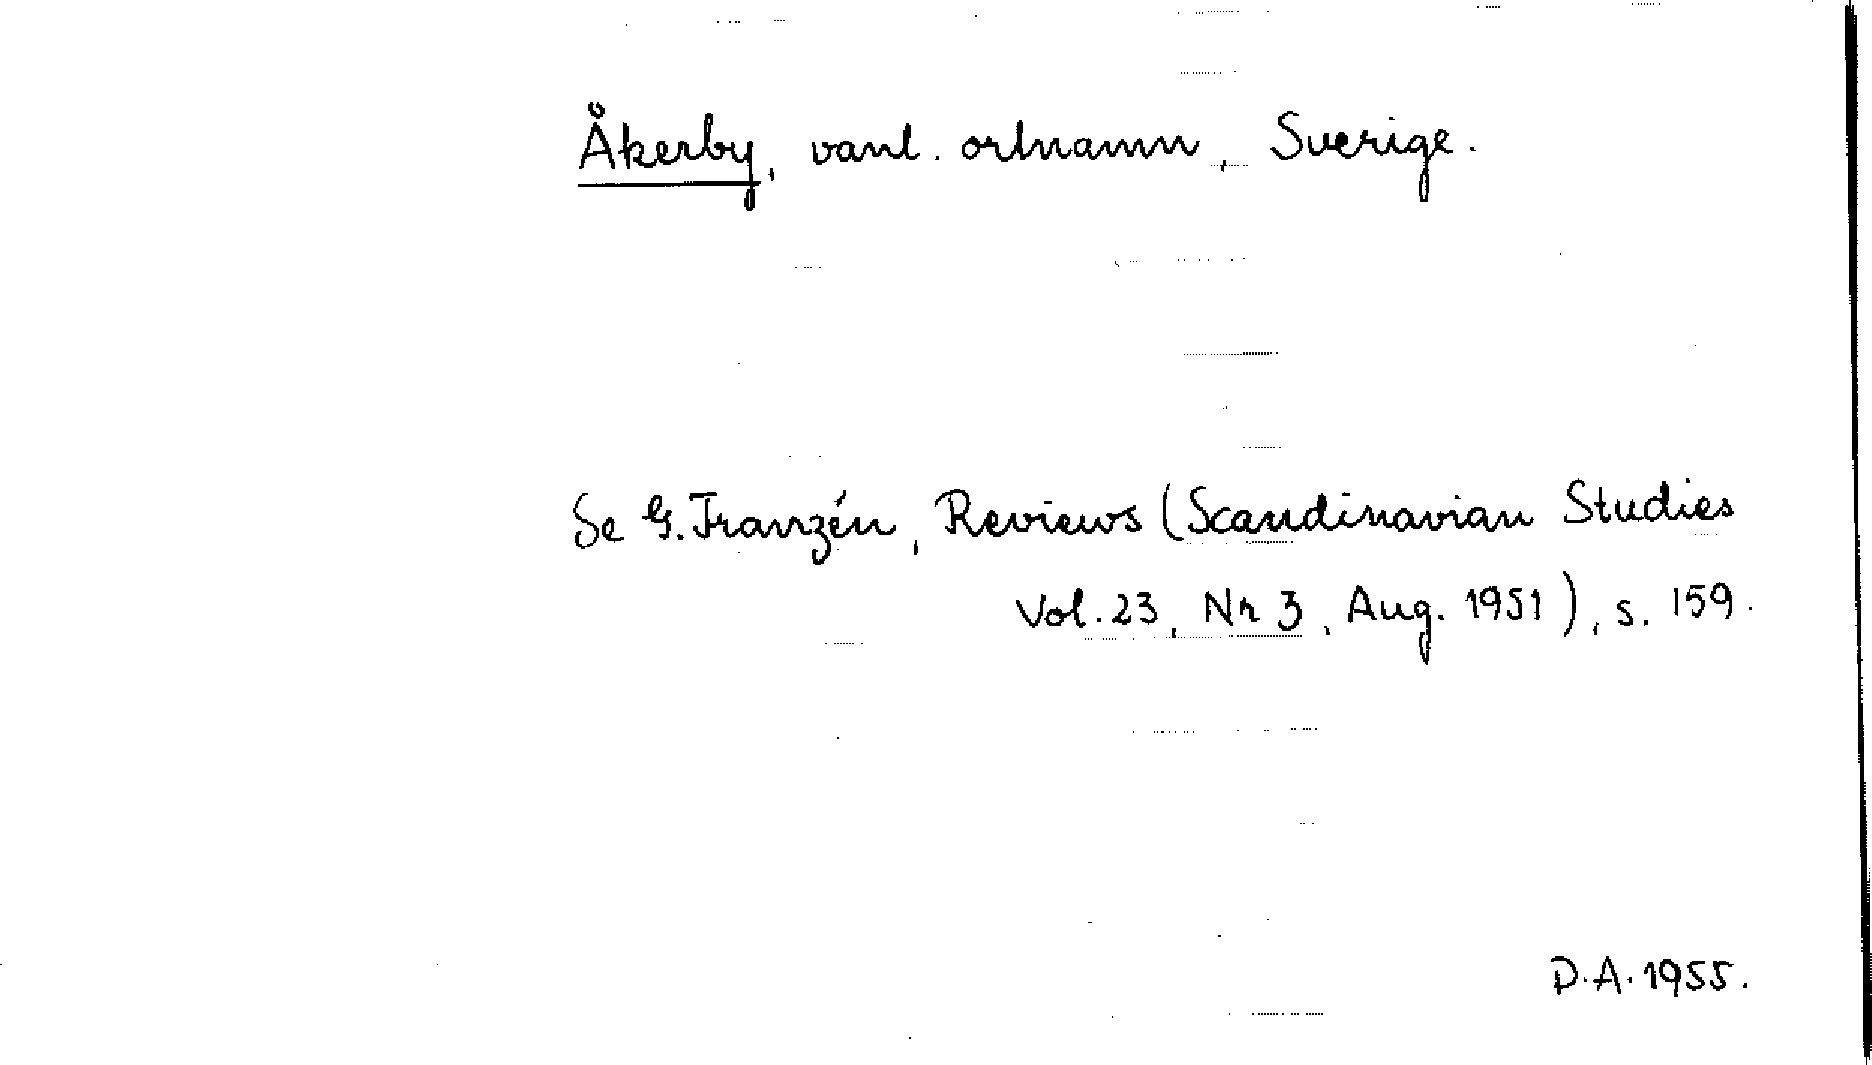 Åkerby, vanl. ortnamn, Sverige.
Se G. Franzén, Reviews (Scandinavian Studies
Vol. 23, Nr 3, Aug. 1951), s. 159.
D.A. 1955.